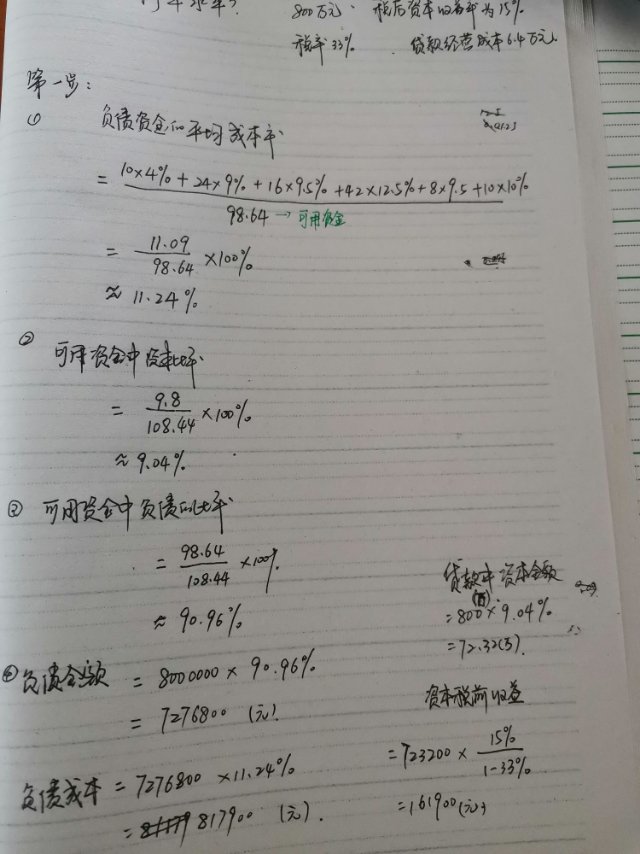 800万元、 税后资本收益率为15%
税率33%、 贷款经营成本6.4万元、
第一步:
① 负债资金的平均成本率
= (10×4% + 24×9% + 16×9.5% + 42×12.5% + 8×9.5 + 10×10%) / 98.64 → 可用资金
= 11.09 / 98.64 ×100%
≈ 11.24%
② 可用资金中资本比率
= 9.8 / 108.44 ×100%
≈ 9.04%
③ 可用资金中负债的比率
= 98.64 / 108.44 ×100%
≈ 90.96%
贷款中资本金额
= 800(万) × 9.04%
= 72.32(万).
④ 负债金额 = 8000000 × 90.96%
= 7276800 (元).
资本税前收益
= 723200 × 15% / 1-33%
= 161900(元)
负债成本 = 7276800 × 11.24%
= 817900 (元).